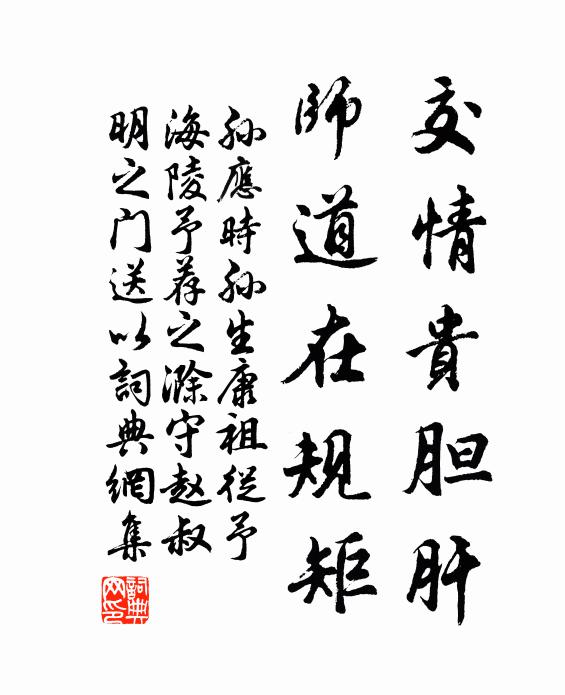 交情貴胆肝
師道在規矩
孙應時孙生康祖從予
海陵予荐之滁守赵叔
明之门送以詞典網集
詞典
网印